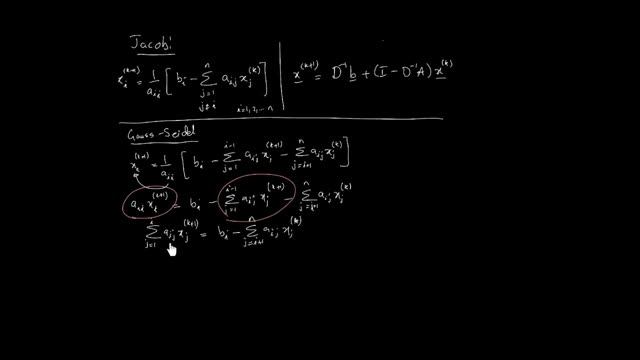 Jacobi
x_i^(k+1) = 1/a_ii [ b_i - Σ_{j=1, j≠i}^{n} a_ij x_j^(k) ] i=1,2,...n | x^(k+1) = D^-1 b + (I - D^-1 A) x^(k)
Gauss-Seidel
x_i^(k+1) = 1/a_ii [ b_i - Σ_{j=1}^{i-1} a_ij x_j^(k+1) - Σ_{j=i+1}^{n} a_ij x_j^(k) ]
a_ii x_i^(k+1) = b_i - Σ_{j=1}^{i-1} a_ij x_j^(k+1) - Σ_{j=i+1}^{n} a_ij x_j^(k)
Σ_{j=1}^{i} a_ij x_j^(k+1) = b_i - Σ_{j=i+1}^{n} a_ij x_j^(k)